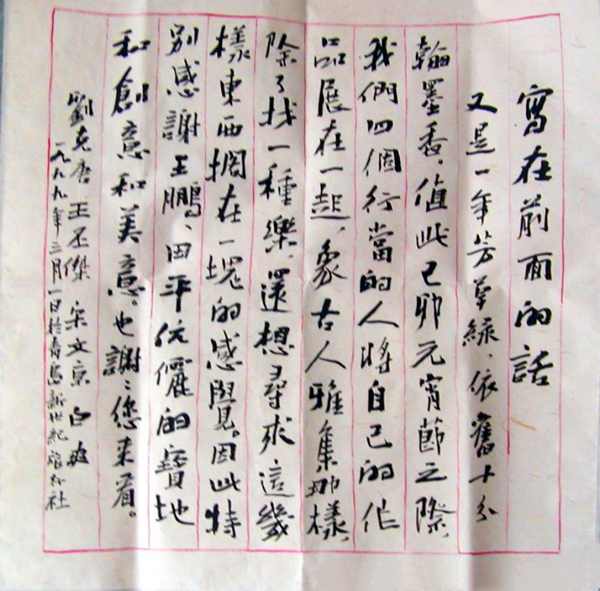 寫在前面的話
又是一年芳草綠、依舊十分
翰墨香。值此己卯元宵節之際、
我們四個行當的人將自己的作
品展在一起、象古人雅集那樣、
除了找一種樂、還想尋求這幾
樣東西擱在一塊的感覺。因此特
別感謝王鵬、田平伉儷的寶地
和創意和美意。也謝謝您來看。
劉克唐 王丕傑 宋文京 白
一九九九年三月一日於青島新世紀旅行社